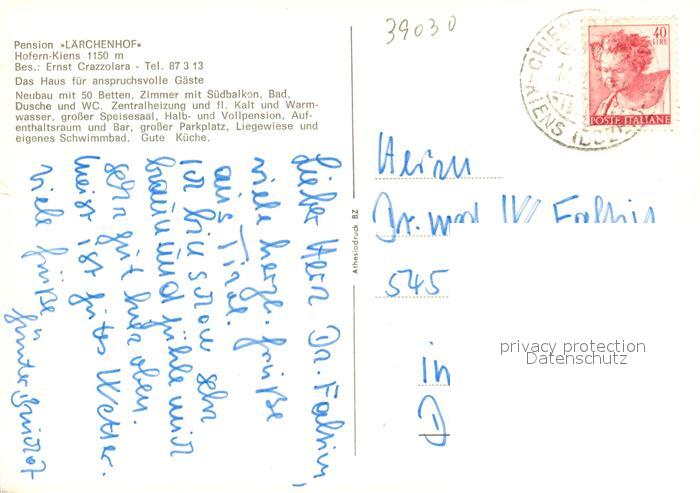 Pension »LÄRCHENHOF«
Hofern-Kiens 1150 m
Bes.: Ernst Crazzolara - Tel. 87 3 13
Das Haus für anspruchsvolle Gäste
Neubau mit 50 Betten, Zimmer mit Südbalkon, Bad,
Dusche und WC. Zentralheizung und fl. Kalt und Warm-
wasser, großer Speisesaal, Halb- und Vollpension, Auf-
enthaltsraum und Bar, großer Parkplatz, Liegewiese und
eigenes Schwimmbad. Gute Küche.
Lieber Herr Dr. Faltin,
viele herzl. Grüße
aus Tirol.
Ich bin schon sehr
braun und fühle mich
sehr gut hier oben.
Meist ist gutes Wetter.
Viele Grüße
Athesiadruck BZ
39030
CHIENES
KIENS (BOLZ
40
LIRE
POSTE ITALIANE
Herrn
Dr. med W Faltin
545
in
D
privacy protection
Datenschutz